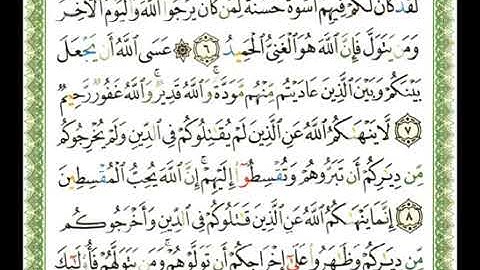 لَقَدْ كَانَ لَكُمْ فِيهِمْ أُسْوَةٌ حَسَنَةٌ لِّمَن كَانَ يَرْجُوا۟ ٱللَّهَ وَٱلْيَوْمَ ٱلْـَٔاخِرَ
وَمَن يَتَوَلَّ فَإِنَّ ٱللَّهَ هُوَ ٱلْغَنِىُّ ٱلْحَمِيدُ ٦ ۞ عَسَى ٱللَّهُ أَن يَجْعَلَ
بَيْنَكُمْ وَبَيْنَ ٱلَّذِينَ عَادَيْتُم مِّنْهُم مَّوَدَّةً ۚ وَٱللَّهُ قَدِيرٌ ۚ وَٱللَّهُ غَفُورٌ رَّحِيمٌ
٧ لَّا يَنْهَىٰكُمُ ٱللَّهُ عَنِ ٱلَّذِينَ لَمْ يُقَـٰتِلُوكُمْ فِى ٱلدِّينِ وَلَمْ يُخْرِجُوكُم
مِّن دِيَـٰرِكُمْ أَن تَبَرُّوهُمْ وَتُقْسِطُوٓا۟ إِلَيْهِمْ ۚ إِنَّ ٱللَّهَ يُحِبُّ ٱلْمُقْسِطِينَ
٨ إِنَّمَا يَنْهَىٰكُمُ ٱللَّهُ عَنِ ٱلَّذِينَ قَـٰتَلُوكُمْ فِى ٱلدِّينِ وَأَخْرَجُوكُم
مِّن دِيَـٰرِكُمْ وَظَـٰهَرُوا۟ عَلَىٰٓ إِخْرَاجِكُمْ أَن تَوَلَّوْهُمْ ۚ وَمَن يَتَوَلَّهُمْ فَأُو۟لَـٰٓئِكَ